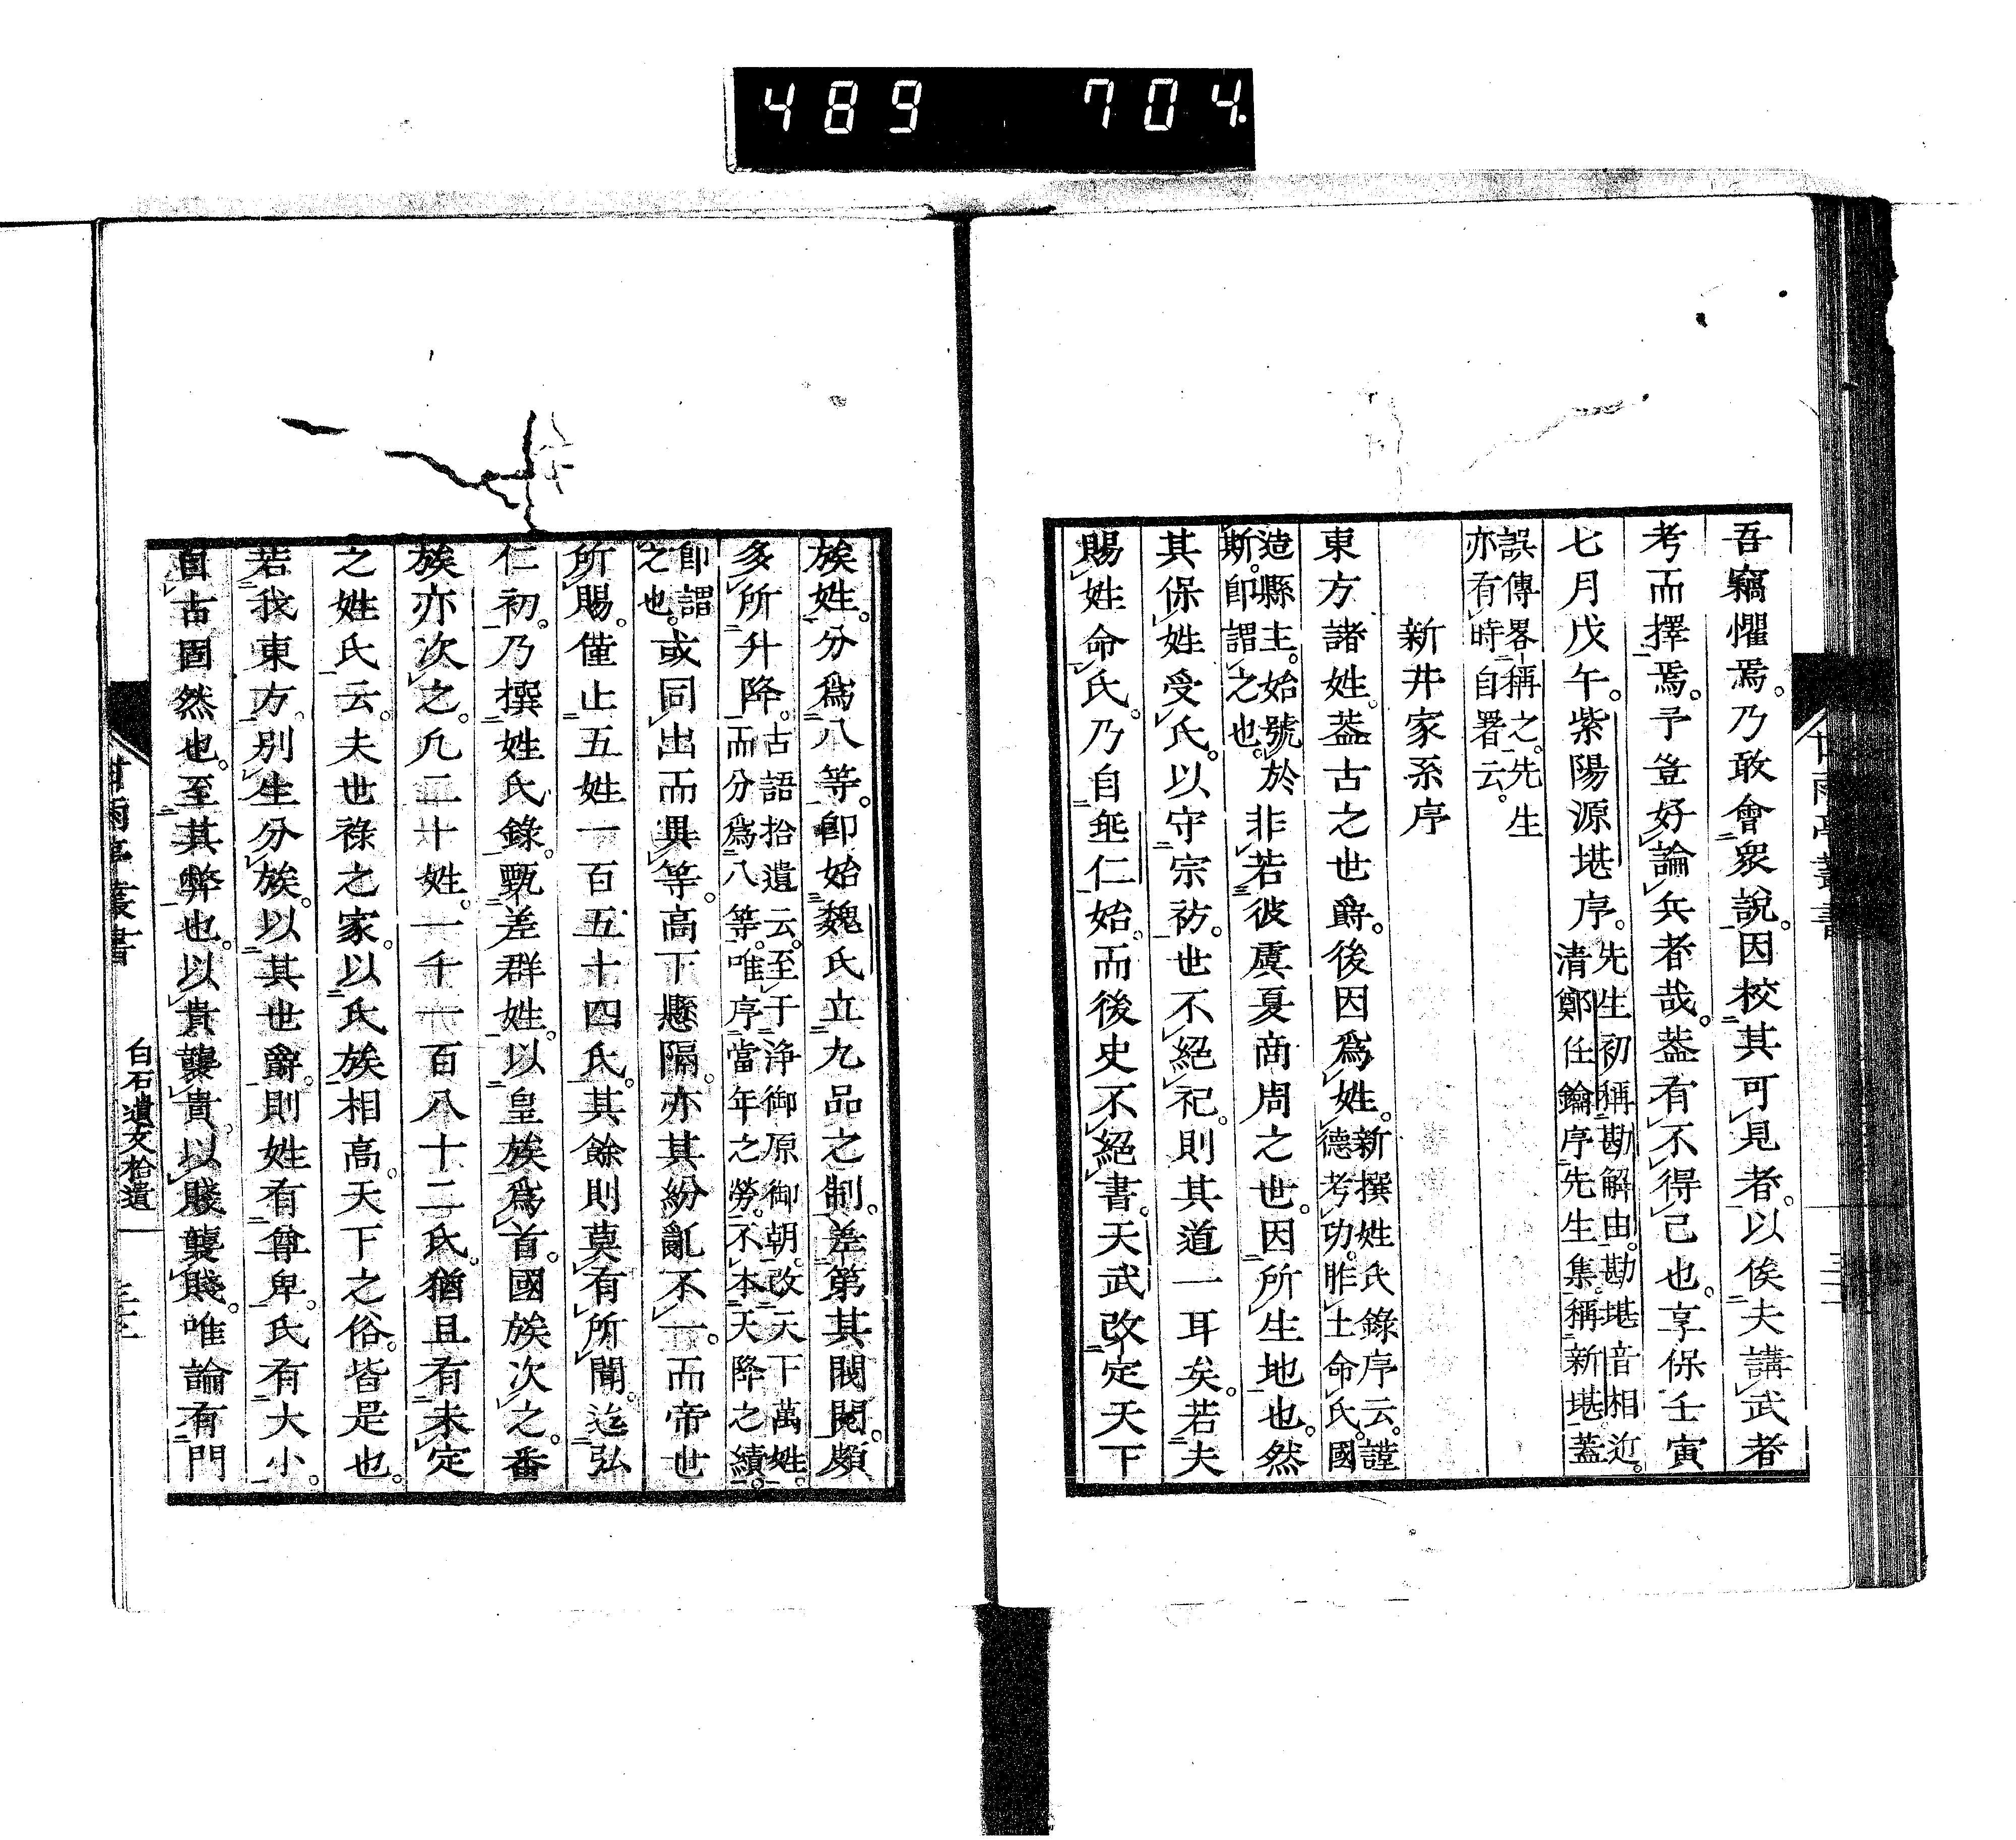 489 704.
吾竊懼焉。乃敢會衆說。因校其可見者。以俟夫講武者
考而擇焉。予豈好論兵者哉。葢有不得已也。享保壬寅
七月戊午。紫陽源堪序。先生初稱勘解由。勘堪音相近。清鄭任鑰序先生集。稱新堪蓋
誤傳畧稱之。先生亦有時自署云。
新井家系序
東方諸姓。葢古之世爵。後因爲姓。新撰姓氏錄序云。謹德考功。胙土命氏。國
造縣主。始號於斯。卽謂之也。非若彼虞夏商周之世。因所生地也。然
其保姓受氏。以守宗祊。世不絕祀。則其道一耳矣。若夫
賜姓命氏。乃自垂仁始。而後史不絕書。天武改定天下
族姓。分爲八等。卽始魏氏立九品之制。差第其閥閱。頗
多所升降。古語拾遺云。至于浄御原御朝。改天下萬姓。而分爲八等。唯序當年之勞。不本天降之績。
卽謂之也。或同出而異等。高下懸隔。亦其紛亂不一。而帝世
所賜。僅止五姓一百五十四氏。其餘則莫有所聞。迨弘
仁初。乃撰姓氏錄。甄差群姓。以皇族爲首。國族次之。番
族亦次之。凢二十姓。一千一百八十二氏。猶且有未定
之姓氏云。夫世祿之家。以氏族相高。天下之俗。皆是也。
若我東方。別生分族。以其世爵。則姓有尊卑。氏有大小。
自古固然也。至其弊也。以貴襲貴。以賤襲賤。唯論有門
甘雨亭叢書
白石遺文拾遺